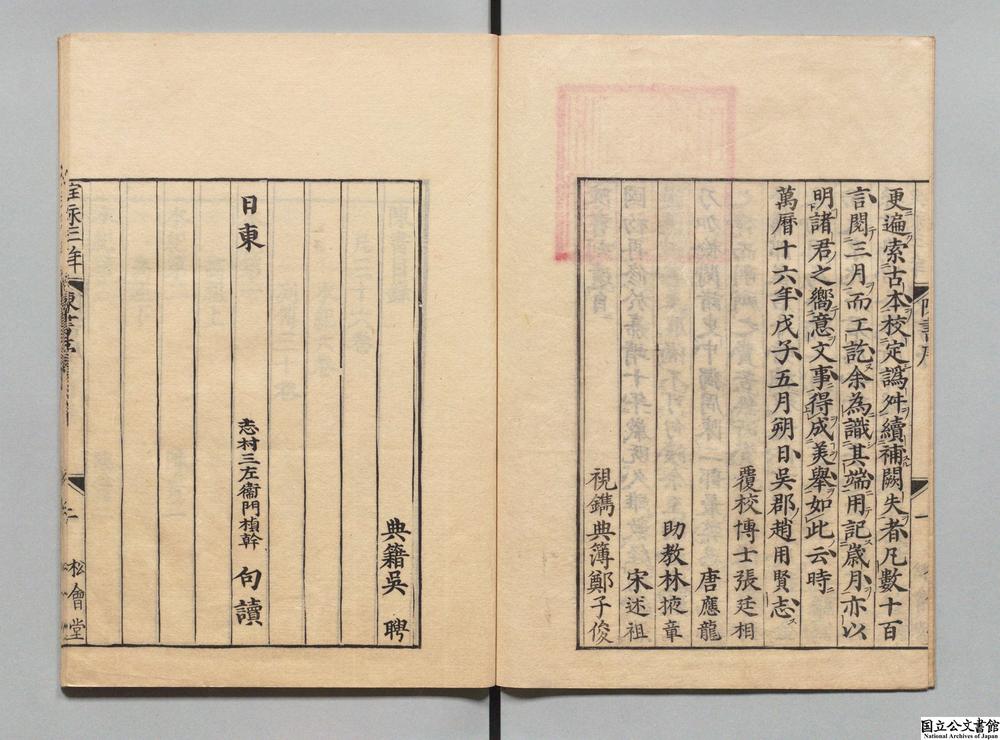 更遍索古本校定譌舛續補闕失者凡數十百
言閱三月而工訖余為識其端用記歲月亦以
明諸君之嚮意文事得成美舉如此云時
萬曆十六年戊子五月朔日吳郡趙用賢志
覆校博士張廷相
唐應龍
助教林掖章
宋述祖
視鐫典簿鄭子俊
典籍吳聘
日東 志村三左衞門楨幹 句讀
松會堂
国立公文書館
National Archives of Japan